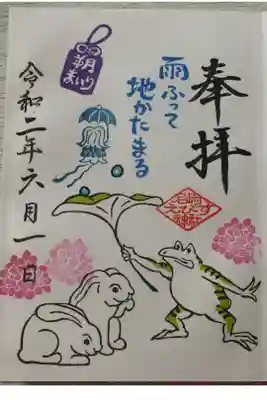 奉拝
雨ふって
地かたまる
朔
まいり
令和二年六月一日